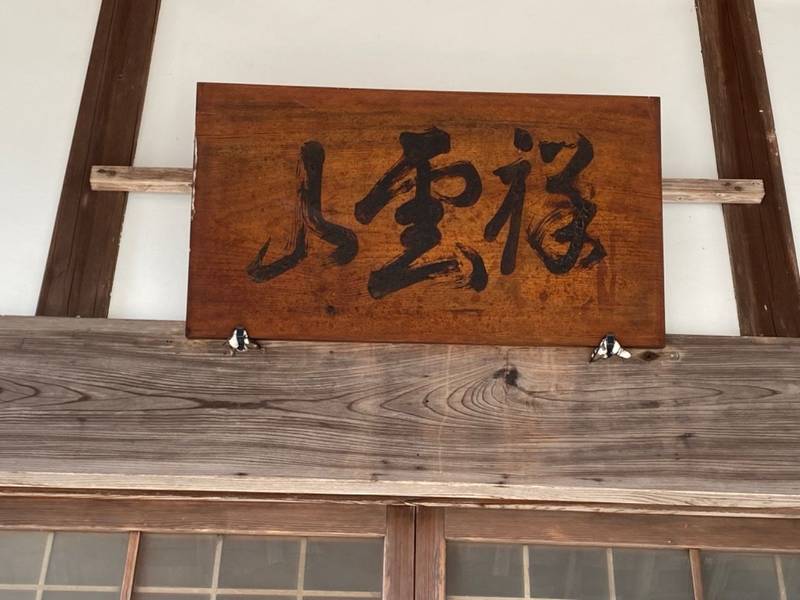 祥雲山